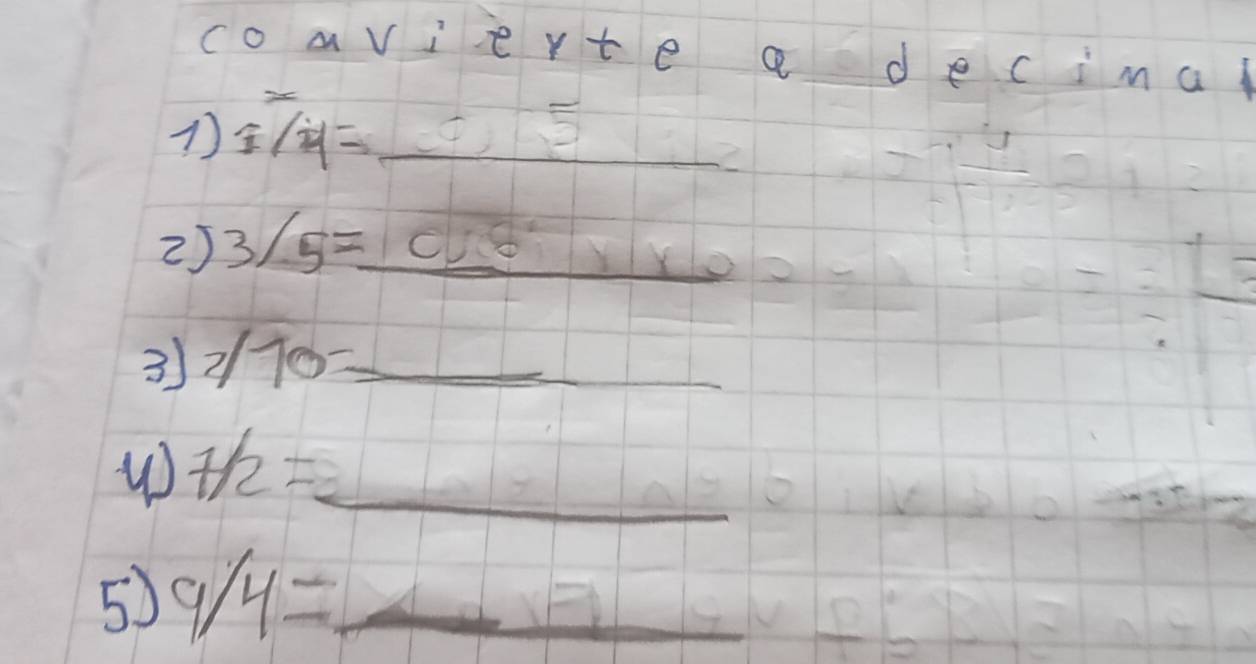 convierte a decimal
1) 1/4=
2) 3/5= 0,6
3) 2/10=
4) 7/2=
5) 9/4=